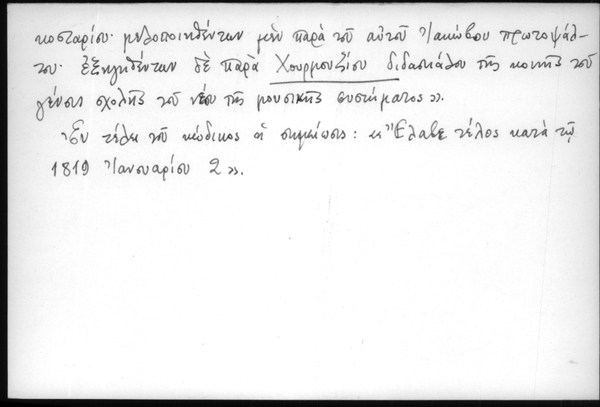 κοσταρίου· μελοποιηθέντων μὲν παρὰ τοῦ αὐτοῦ Ἰακώβου πρωτοψάλ-
του· ἐξηγηθέντων δὲ παρὰ Χουρμουζίου διδασκάλου τῆς κοινῆς τοῦ
γένους σχολῆς τοῦ νέου τῆς μουσικῆς συστήματος».
Ἐν τέλει τοῦ κώδικος ἡ σημείωσις: «Ἔλαβε τέλος κατὰ τῷ
1819 Ἰανουαρίου 2».